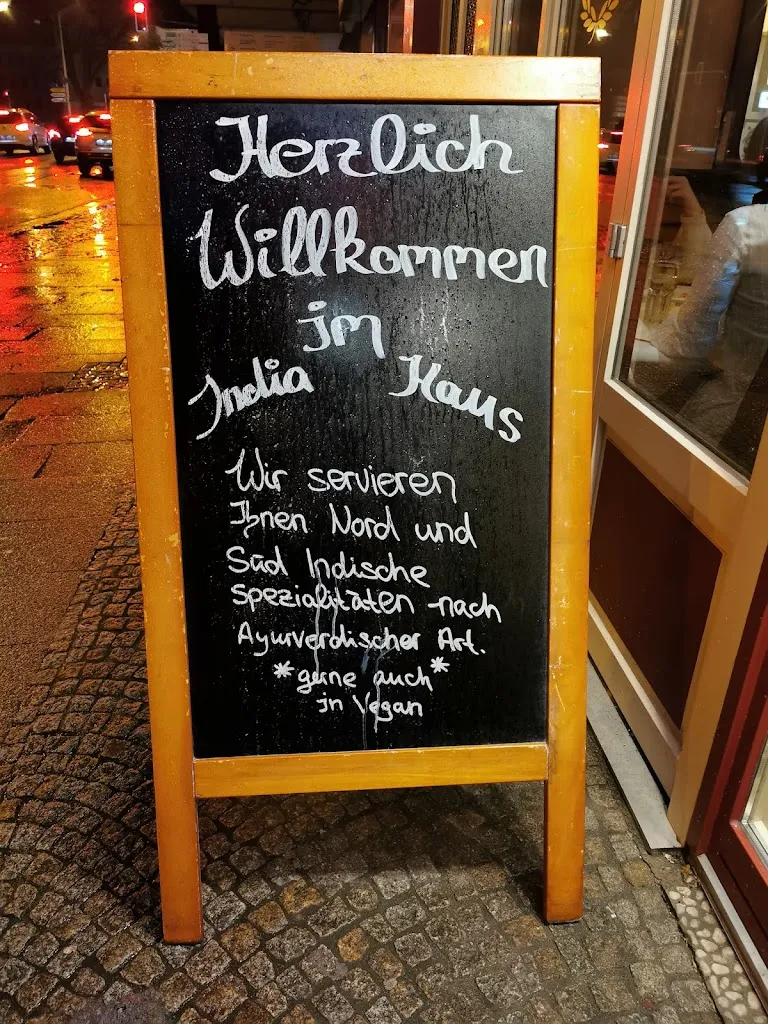 Herzlich
Willkommen
im
India Haus
Wir servieren
Ihnen Nord und
Süd Indische
Spezialitäten nach
Ayurverdischer Art.
*gerne auch*
in Vegan